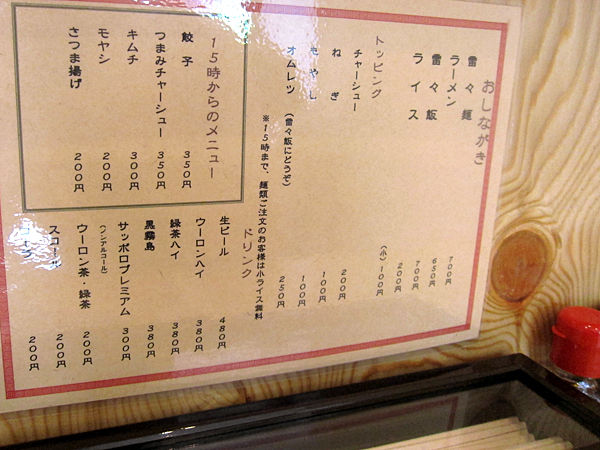 おしながき
雷々麺 700円
ラーメン 650円
雷々飯 700円
ライス 200円
(小) 100円
トッピング
チャーシュー 200円
ねぎ 100円
もやし 100円
オムレツ (雷々飯にどうぞ) 250円
※15時まで、麺類ご注文のお客様は小ライス無料
15時からのメニュー
餃子 350円
つまみチャーシュー 350円
キムチ 300円
モヤシ 200円
さつま揚げ 200円
ドリンク
生ビール 480円
ウーロンハイ 380円
緑茶ハイ 380円
黒霧島 380円
サッポロプレミアム (ノンアルコール) 300円
ウーロン茶・緑茶 200円
スコール 200円
200円